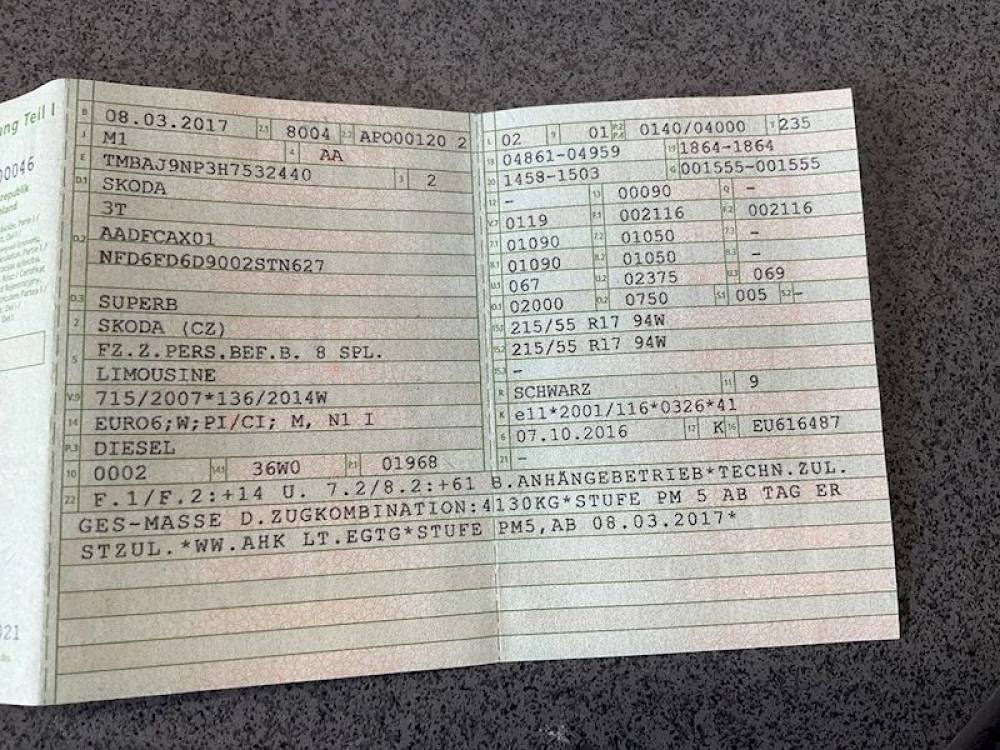 ung Teil I
00046
021
B 08.03.2017 2.1 8004 2.2 AP000120 2
J M1 4 AA
E TMBAJ9NP3H7532440 3 2
D.1 SKODA
3T
D.2 AADFCAX01
NFD6FD6D9002STN627
D.3 SUPERB
2 SKODA (CZ)
5 FZ.Z.PERS.BEF.B. 8 SPL.
LIMOUSINE
V.9 715/2007*136/2014W
14 EURO6;W;PI/CI; M, N1 I
P.3 DIESEL
10 0002 14.1 36W0 P.1 01968
L 02 9 01 P.2 P.4 0140/04000 T 235
18 04861-04959 19 1864-1864
20 1458-1503 G 001555-001555
12 - 13 00090 Q -
V.7 0119 F.1 002116 F.2 002116
7.1 01090 7.2 01050 7.3 -
8.1 01090 8.2 01050 8.3 -
U.1 067 U.2 02375 U.3 069
O.1 02000 O.2 0750 S.1 005 S.2 -
15.1 215/55 R17 94W
15.2 215/55 R17 94W
15.3 -
R SCHWARZ 11 9
K e11*2001/116*0326*41
6 07.10.2016 17 K 16 EU616487
21 -
22 F.1/F.2:+14 U. 7.2/8.2:+61 B.ANHÄNGEBETRIEB*TECHN.ZUL.
GES-MASSE D.ZUGKOMBINATION:4130KG*STUFE PM 5 AB TAG ER
STZUL.*WW.AHK LT.EGTG*STUFE PM5,AB 08.03.2017*